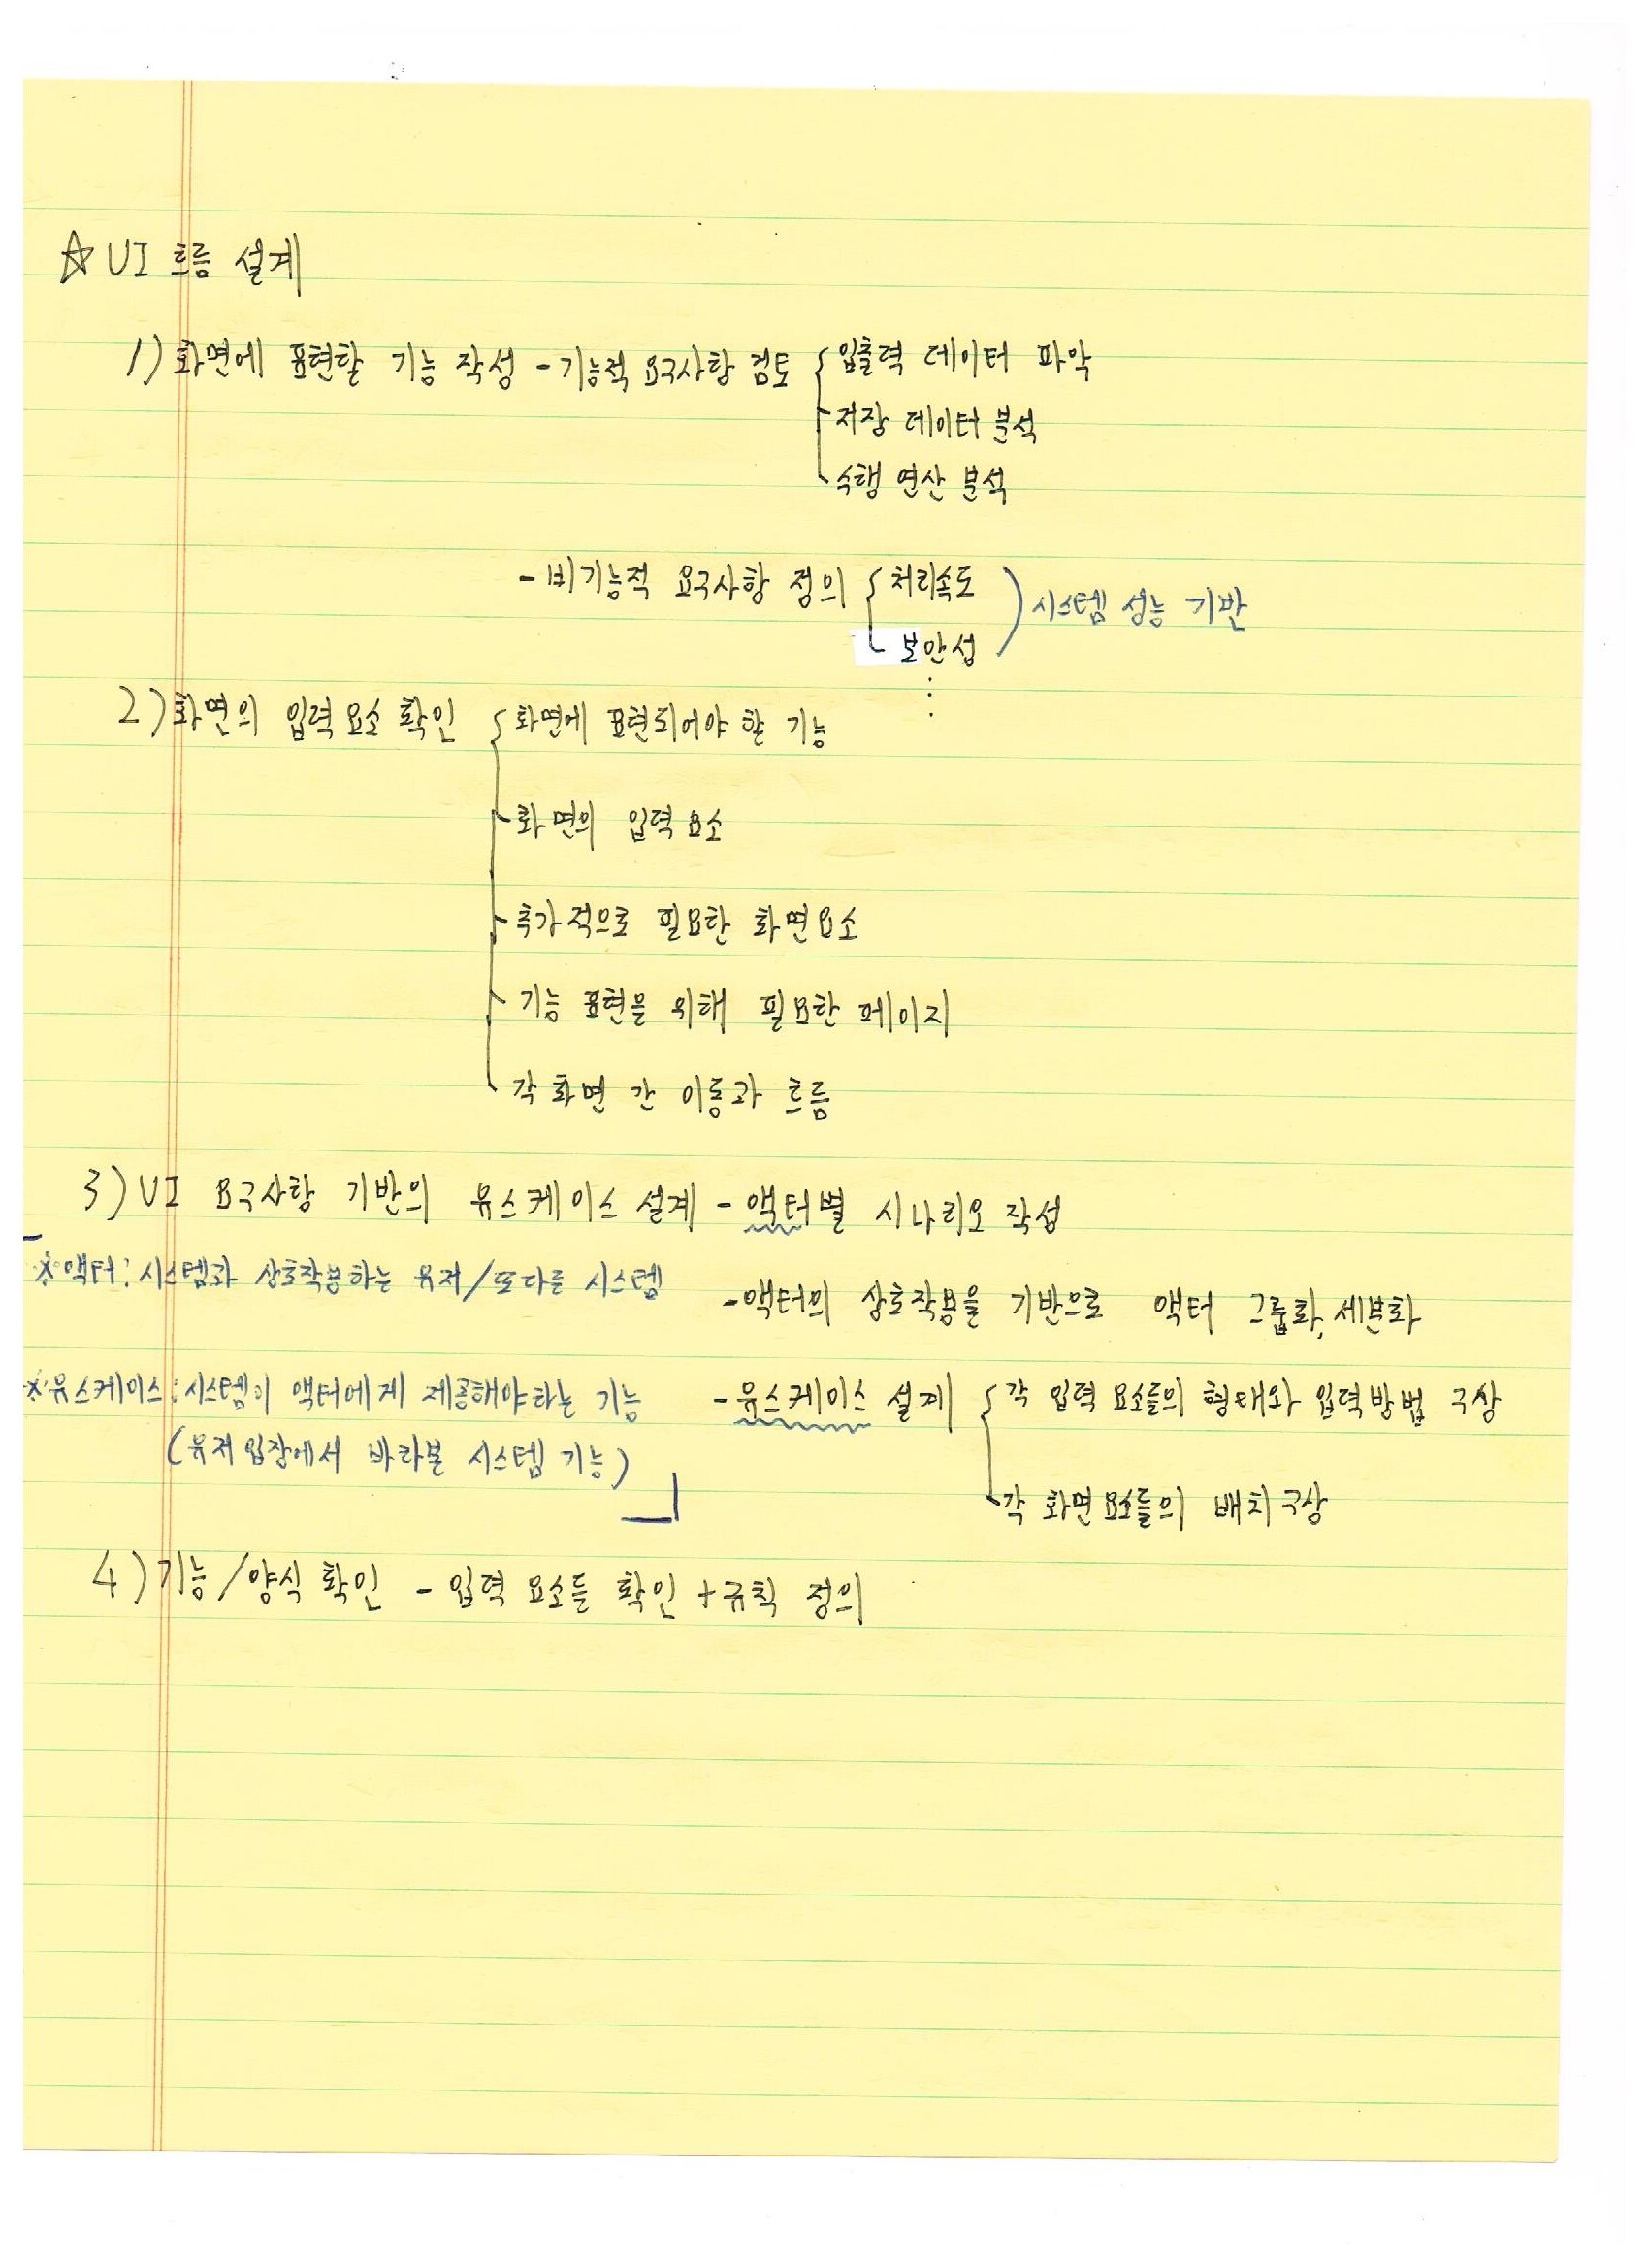 ☆ UI 흐름 설계
1) 화면에 표현할 기능 작성 - 기능적 요구사항 검토 { 입출력 데이터 파악
저장 데이터 분석
수행 연산 분석
- 비기능적 요구사항 정의 { 처리속도
보안성
) 시스템 성능 기반
⋮
2) 화면의 입력 요소 확인 { 화면에 표현되어야 할 기능
화면의 입력 요소
추가적으로 필요한 화면요소
기능 표현을 위해 필요한 페이지
각 화면 간 이동과 흐름
3) UI 요구사항 기반의 유스케이스 설계 - 액터별 시나리오 작성
※액터: 시스템과 상호작용하는 유저/또다른 시스템
- 액터의 상호작용을 기반으로 액터 그룹화, 세분화
※유스케이스: 시스템이 액터에게 제공해야하는 기능
(유저 입장에서 바라본 시스템 기능)
- 유스케이스 설계 { 각 입력 요소들의 형태와 입력방법 구상
각 화면 요소들의 배치 구상
4) 기능/양식 확인 - 입력 요소들 확인 + 규칙 정의